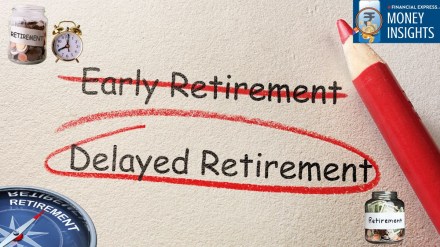 RETIREMENT
FINANCIAL EXPRESS
MONEY
INSIGHTS
Early Retirement
Delayed Retirement
RETIREMENT
RETIREMENT
Retirement